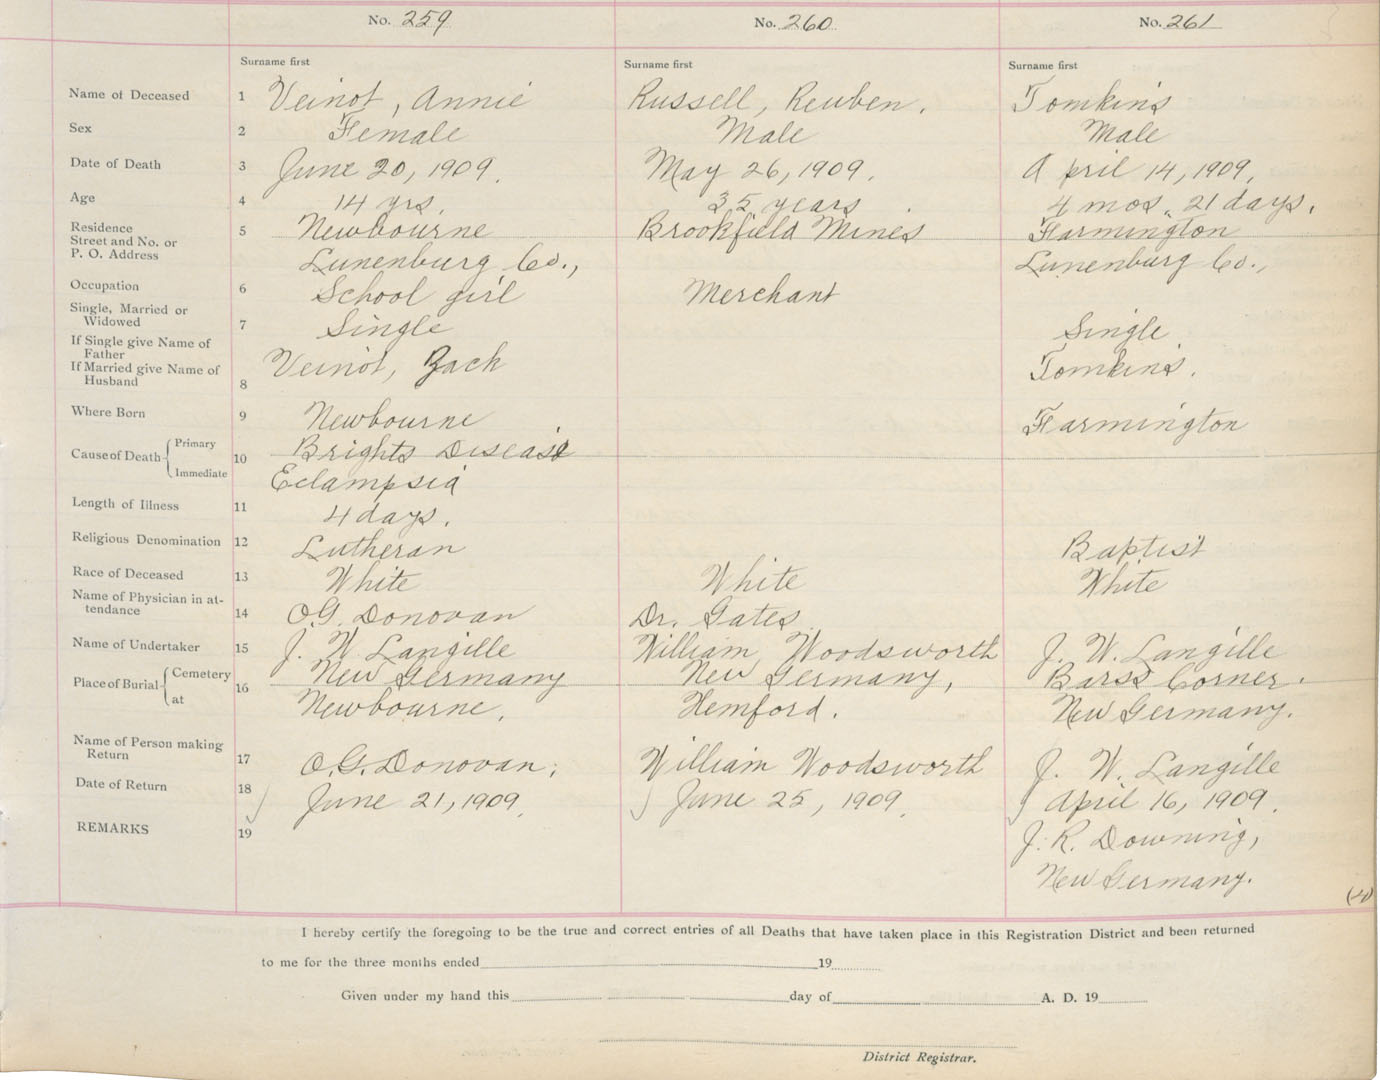 No. 259 No. 260 No. 261
Surname first Surname first Surname first
Name of Deceased 1 Veinot, Annie Russell, Reuben. Tomkins
Sex 2 Female Male Male
Date of Death 3 June 20, 1909. May 26, 1909. April 14, 1909.
Age 4 14 yrs. 35 years 4 mos. 21 days.
Residence
Street and No. or 5 Newbourne Brookfield Mines Farmington
P. O. Address Lunenburg Co., Lunenburg Co.,
Occupation 6 School girl Merchant
Single, Married or
Widowed 7 Single Single
If Single give Name of
Father Veinot, Zach Tomkins.
If Married give Name of
Husband 8
Where Born 9 Newbourne Farmington
Cause of Death Primary 10 Brights Disease
Immediate Eclampsia
Length of Illness 11 4 days.
Religious Denomination 12 Lutheran Baptist
Race of Deceased 13 White White White
Name of Physician in at-
tendance 14 O.G. Donovan Dr. Gates
Name of Undertaker 15 J. W. Langille William Woodsworth J. W. Langille
Place of Burial Cemetery 16 New Germany New Germany, Barss Corner.
at Newbourne. Hemford. New Germany.
Name of Person making
Return 17 O.G. Donovan; William Woodsworth J. W. Langille
Date of Return 18 June 21, 1909. June 25, 1909. April 16, 1909.
REMARKS 19 J. R. Downing,
New Germany.
I hereby certify the foregoing to be the true and correct entries of all Deaths that have taken place in this Registration District and been returned
to me for the three months ended 19
Given under my hand this day of A. D. 19
District Registrar.